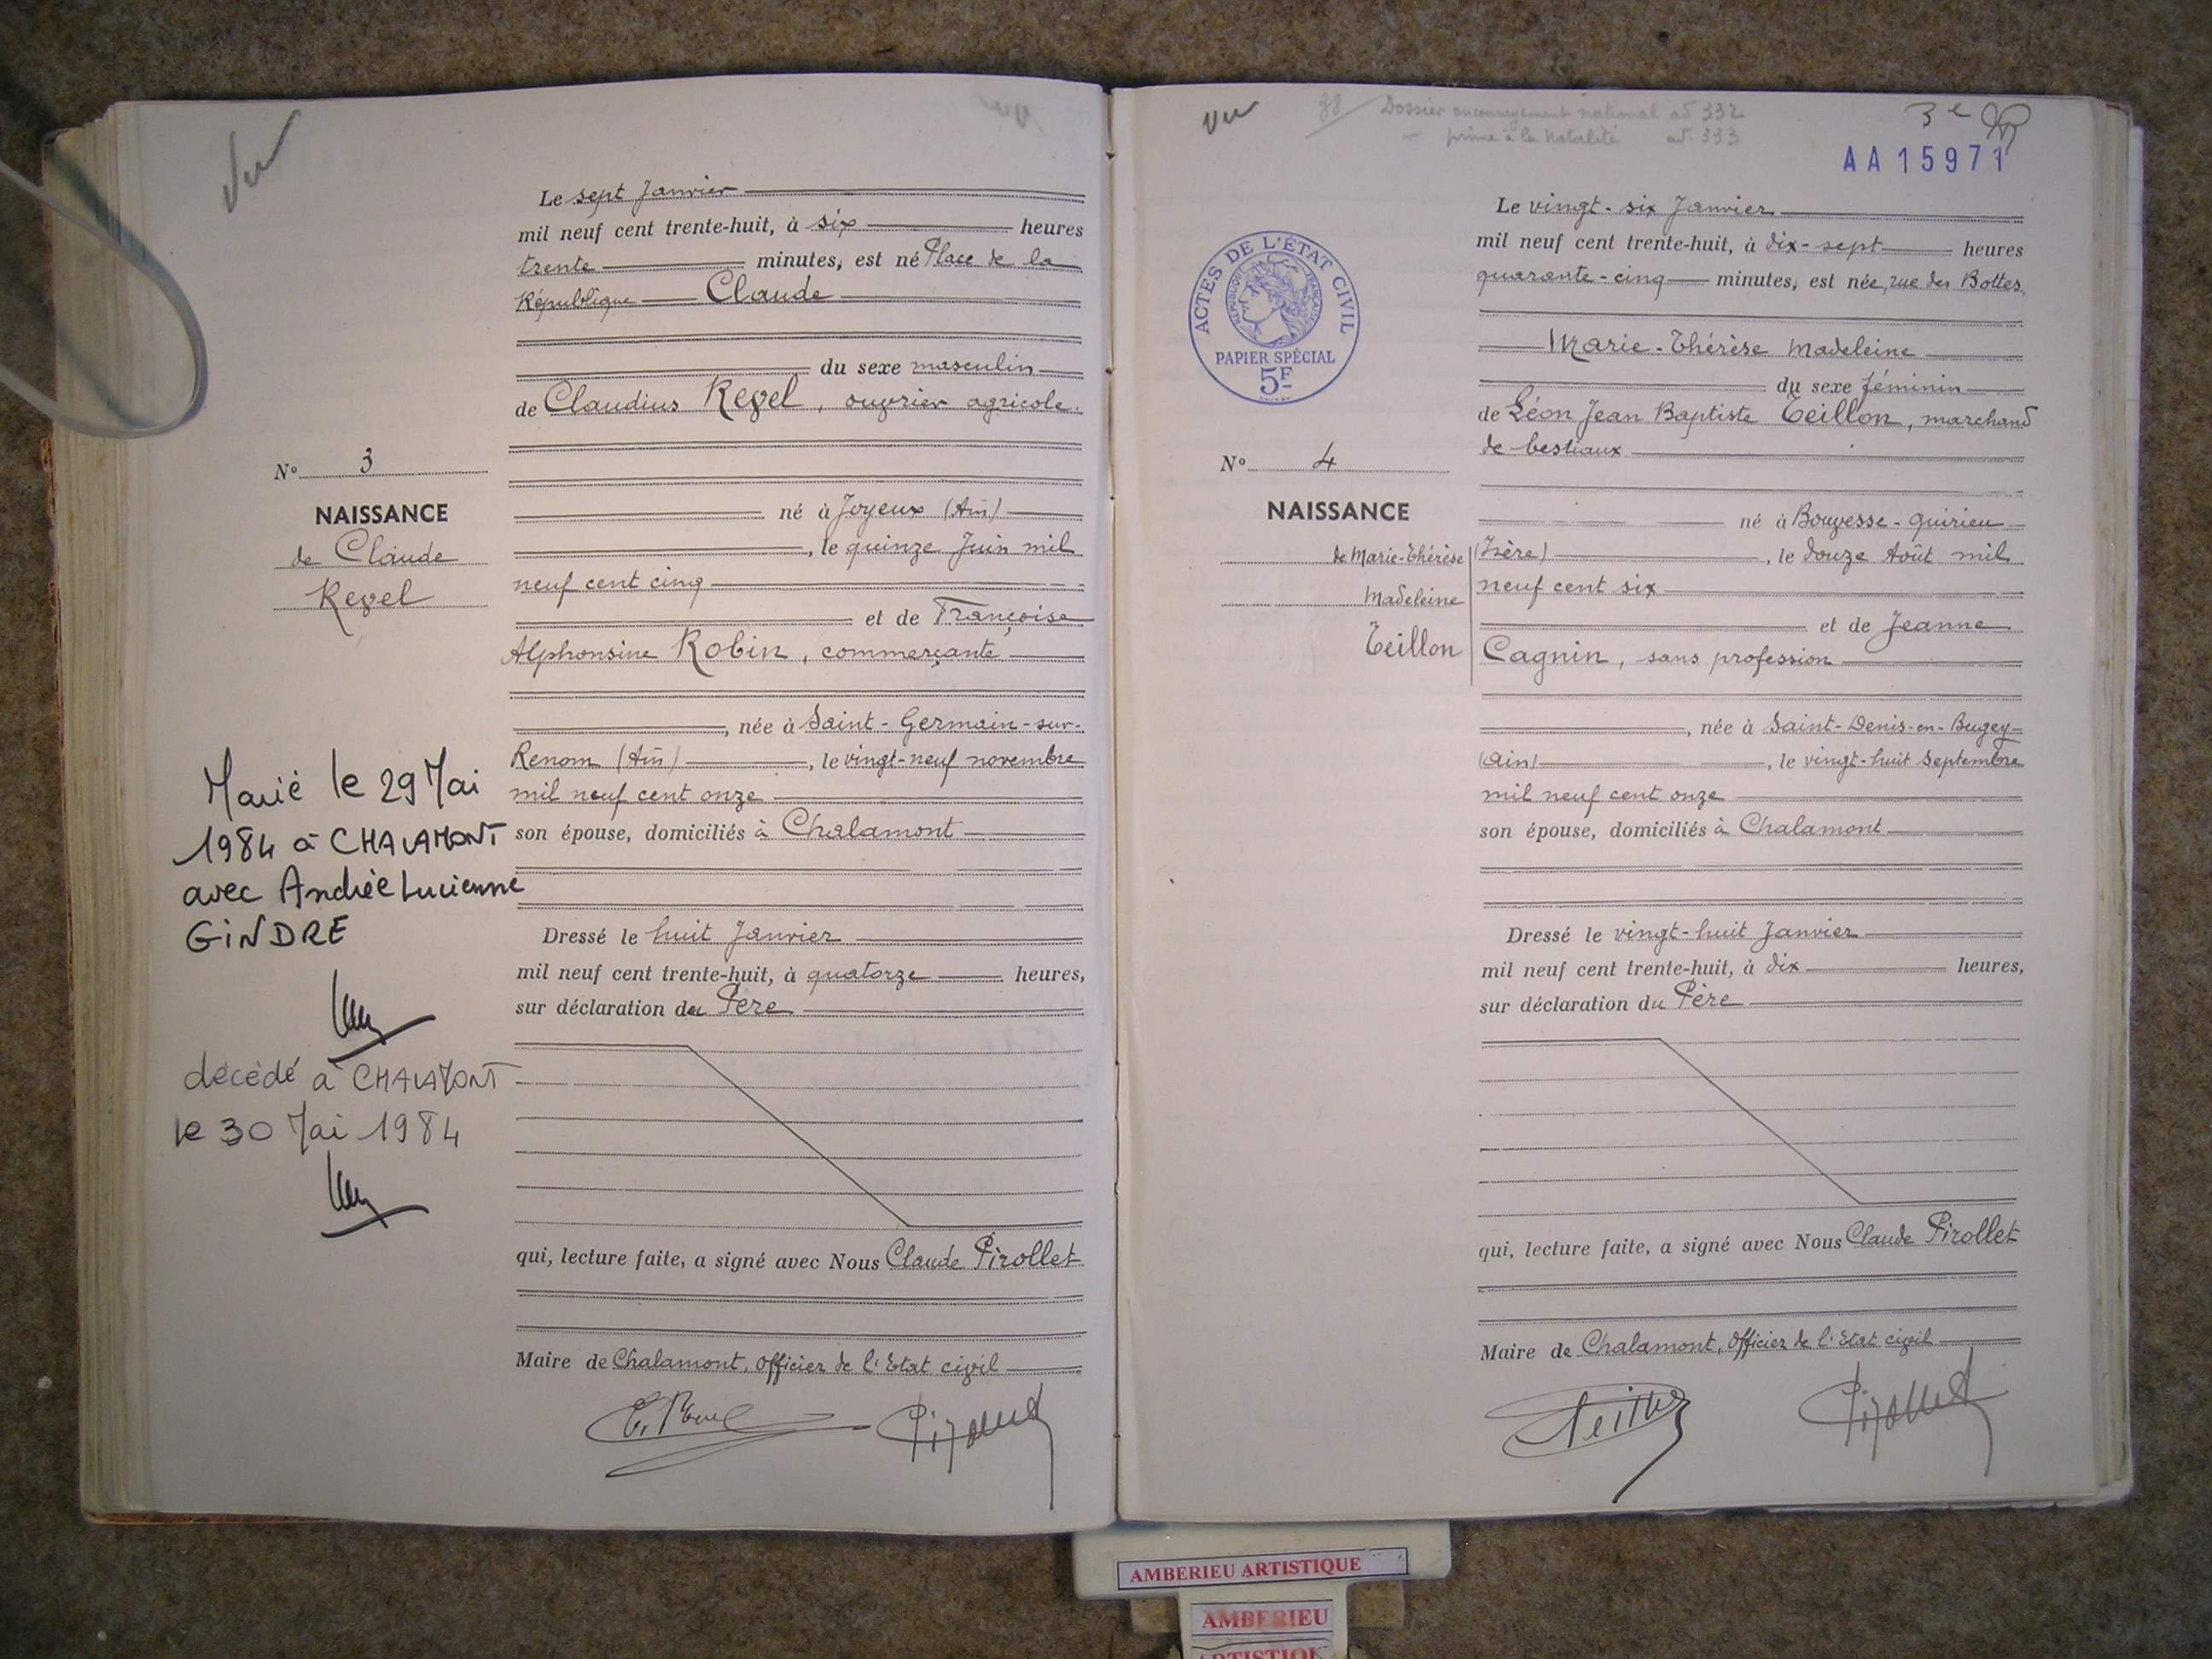 Vu
Le sept Janvier
mil neuf cent trente-huit, à six heures
trente minutes, est né Place de la
République Claude
du sexe masculin
de Claudius Revel, ouvrier agricole.
né à Joyeux (Ain)
, le quinze Juin mil
neuf cent cinq
et de Françoise
Alphonsine Robin, commerçante
, née à Saint-Germain-sur-
Renom (Ain), le vingt-neuf novembre
mil neuf cent onze
son épouse, domiciliés à Chalamont
Dressé le huit Janvier
mil neuf cent trente-huit, à quatorze heures,
sur déclaration du Père
qui, lecture faite, a signé avec Nous Claude Pirollet
Maire de Chalamont, officier de l'Etat civil
Pirollet
N° 3
NAISSANCE
de Claude
Revel
Marié le 29 Mai
1984 à CHALAMONT
avec Andrée Lucienne
GINDRE
décédé à CHALAMONT
le 30 Mai 1984
Vu
38 Dossier encouragement national ad 332
prime à la natalité ad. 333
3e
AA 15971
ACTES DE L'ÉTAT CIVIL
RÉPUBLIQUE FRANÇAISE
PAPIER SPÉCIAL
5F
Le vingt-six Janvier
mil neuf cent trente-huit, à dix-sept heures
quarante-cinq minutes, est née, rue des Bottes,
Marie-Thérèse Madeleine
du sexe féminin
de Léon Jean Baptiste Teillon, marchand
de bestiaux
né à Bouvesse-Quirieu
(Isère), le douze Août mil
neuf cent six
et de Jeanne
Cagnin, sans profession
, née à Saint-Denis-en-Bugey
(Ain), le vingt-huit Septembre
mil neuf cent onze
son épouse, domiciliés à Chalamont
Dressé le vingt-huit Janvier
mil neuf cent trente-huit, à dix heures,
sur déclaration du Père
qui, lecture faite, a signé avec Nous Claude Pirollet
Maire de Chalamont, officier de l'Etat civil
Teillon Pirollet
N° 4
NAISSANCE
de Marie-Thérèse
Madeleine
Teillon
AMBERIEU ARTISTIQUE
AMBERIEU
ARTISTIQUE